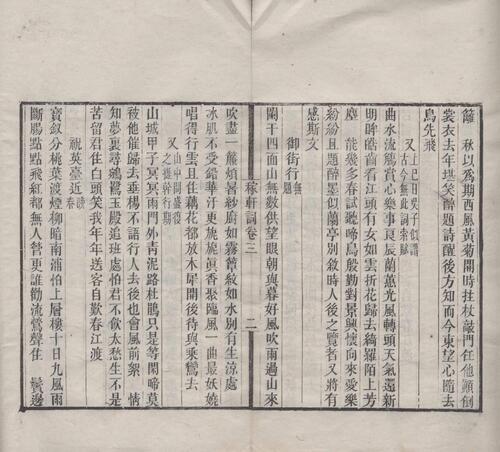 籬　秋以爲期西風黄菊開時拄杖敲門任他顛倒
裳衣去年堪笑醉題詩醒後方知而今東望心隨去
鳥先飛
又　上巳日吳子似謂古今無此詞索賦
曲水流觴賞心樂事良辰蘭蕙光風轉頭天氣還新
明眸皓齒看江頭有女如雲折花歸去綺羅陌上芳
塵　能幾多春試聽啼鳥殷勤對景興懷向來哀樂
紛紛且題醉墨似蘭亭列敘時人後之覽者又將有
感斯文
御街行　無題
闌干四面山無數供望眼朝與暮好風吹雨過山來
稼軒詞卷三　二
吹盡一簾煩暑紗廚如霧簟紋如水別有生涼處
冰肌不受鉛華汙更旎旎真香聚臨風一曲最妖嬈
唱得行雲且住藕花都放木犀開後待與乘鸞去
又　山中問盛復之提幹行期
山城甲子冥冥雨門外青泥路杜鵑只是等閒啼莫
被他催歸去垂楊不語行人去後也會風前絮　情
知夢裏尋鵷鷺玉殿追班處怕君不飮太愁生不是
苦留君住白頭笑我年年送客自歎春江渡
祝英臺近　晚春
寶釵分桃葉渡煙柳暗南浦怕上層樓十日九風雨
斷腸點點飛紅都無人管更誰勸流鶯聲住　鬢邊